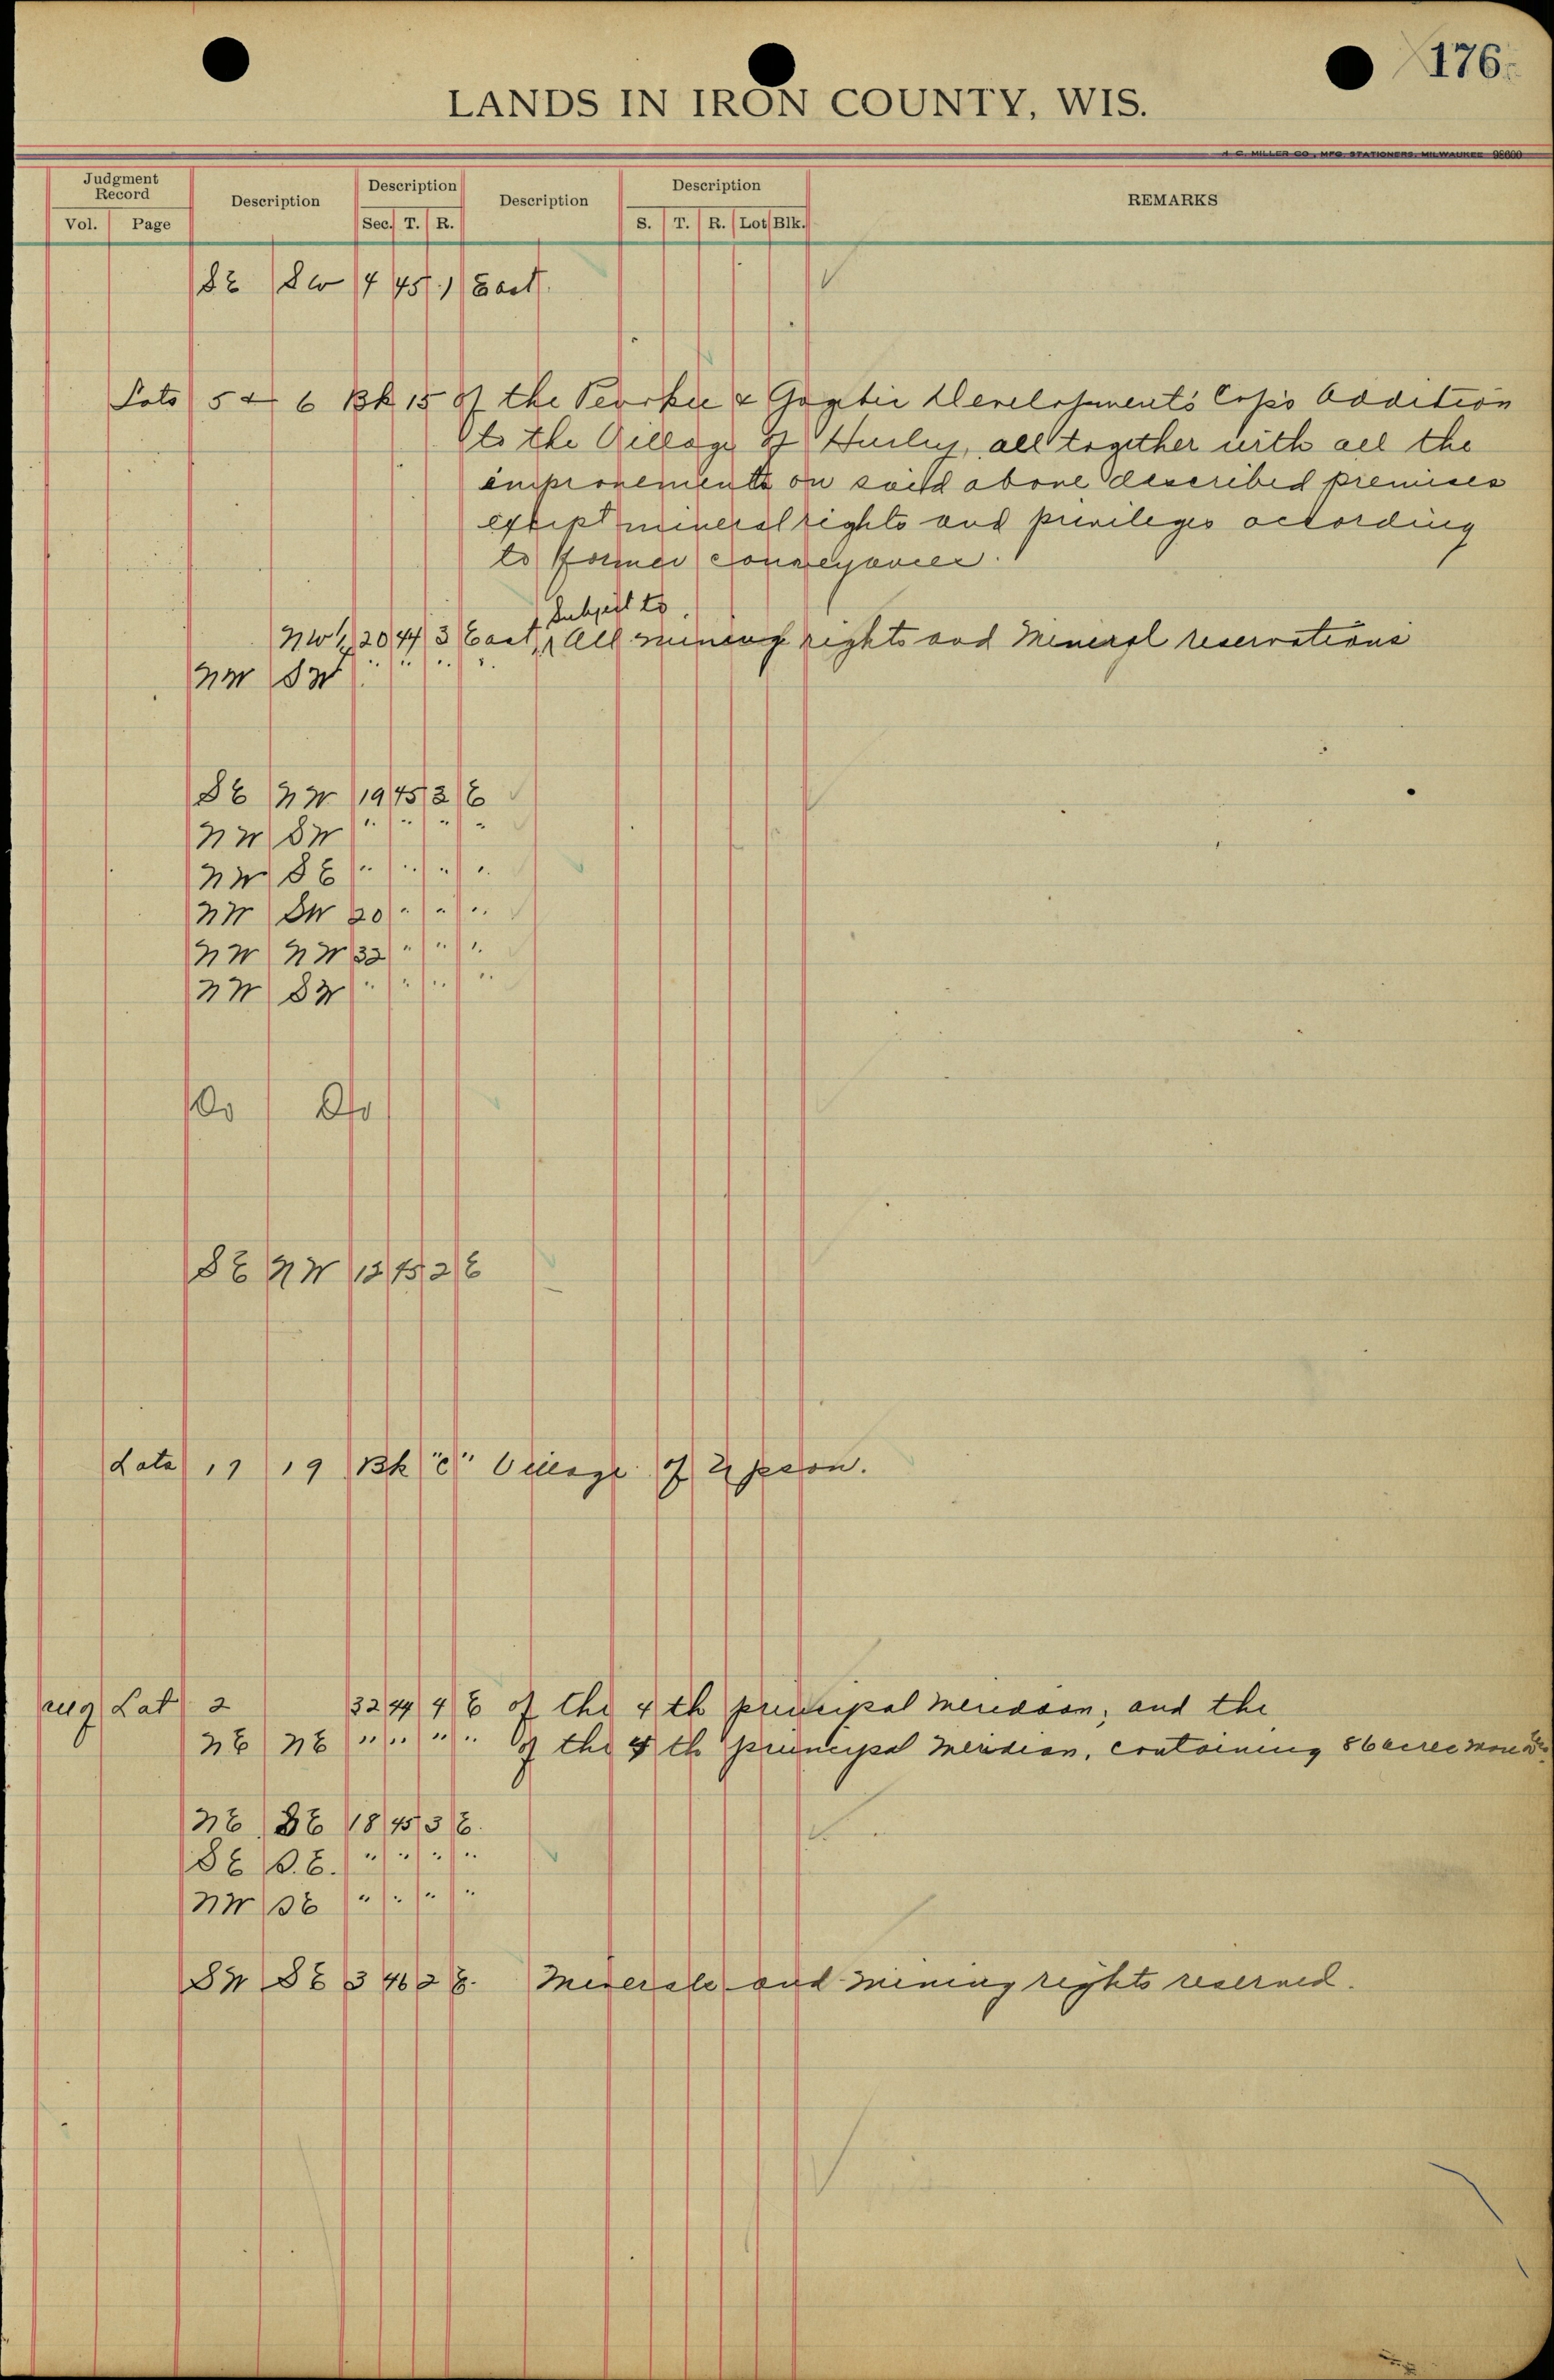 176
LANDS IN IRON COUNTY, WIS.
H. C. MILLER CO., MFG. STATIONERS, MILWAUKEE 98600
Judgment Record
Vol. Page
Description
Description
Sec. T. R.
Description
Description
S. T. R. Lot Blk.
REMARKS
SE SW 4 45 1 East.
Lots 5 & 6 Bk 15 of the & Gogebic Developments Co's Addition
to the Village of Hurley, all together with all the
improvements on said above described premises
except mineral rights and privileges according
to former conveyances.
Subject to
NW¼ 20 44 3 East, All mining rights and Mineral reservations
NW SW " " " "
SE NW 19 45 2 E
NW SW " " " "
NW SE " " " "
NW SW 20 " " "
NW NW 33 " " "
NW SW " " " "
Do Do
SE NW 13 45 2 E
Lots 19 Bk "C" Village of Upson.
Lot 2 32 44 4 E of the 4th principal Meridian, and the
NE NE " " " " of the 4th principal Meridian, containing acres
NE SE 18 45 3 E.
SE S.E. " " " "
NW SE " " " "
SW SE 3 46 2 E. Minerals and Mining rights reserved.